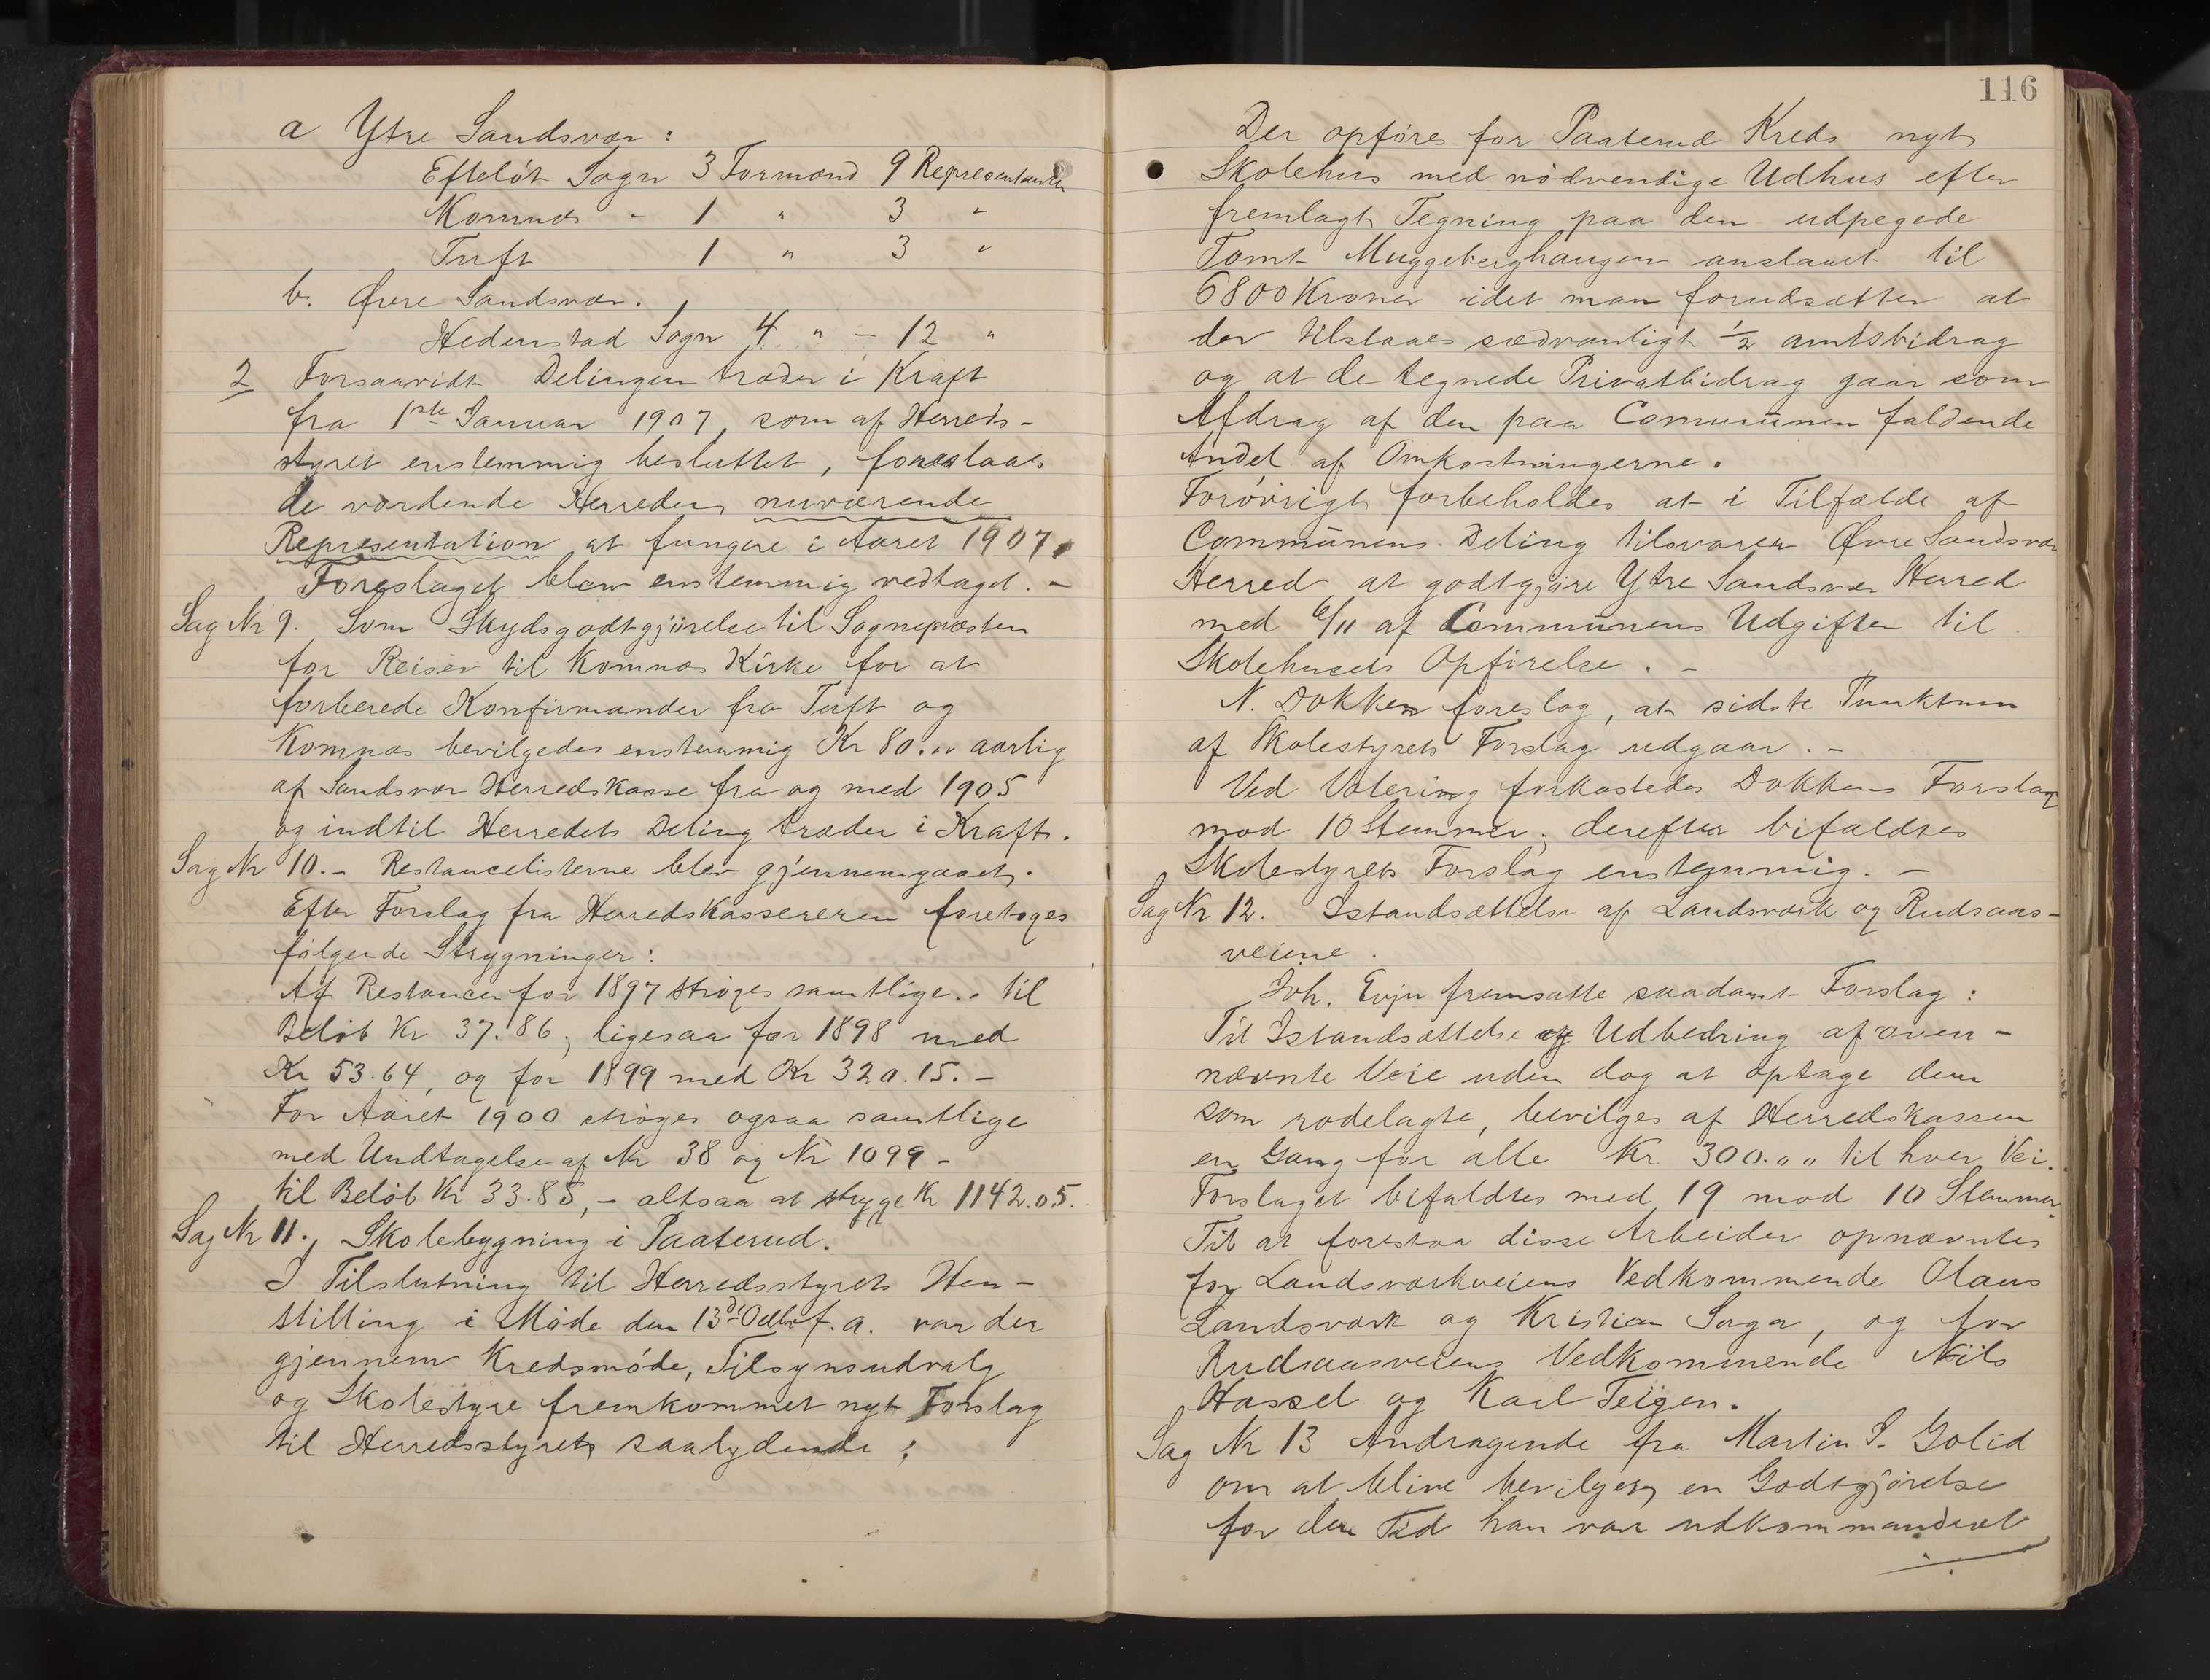 a Ytre Sandsvær:
Efteløt Sogn 3 Formænd 9 Representanter
Komnæs " 1 " 3 "
Tuft 1 " 3 "
b. Øvre Sandsvær.
Hedenstad Sogn 4 " – 12 "
2 Forsaavidt Delingen træder i Kraft
fra 1ste Januar 1907, som af Herreds-
styret enstemmig besluttet, foreslaaes
de vordende Herreders nuværende
Representation at fungere i Aaret 1907.
Foreslaget blev enstemmig vedtaget. –
Sag Nr 9. Som Skydsgodtgjørelse til Sognepresten
for Reiser til Komnæs Kirke for at
forberede Konfirmander fra Tuft og
Komnæs bevilgedes enstemmig Kr 80.00 aarlig
af Sandsvær Herredskasse fra og med 1905
og indtil Herredets Deling træder i Kraft.
Sag Nr 10. – Restancelisterne blev gjennemgaaet.
Efter Forslag fra Herredskassereren foretoges
følgende Strygninger:
Af Restancer for 1897 strøges samtlige . til
Beløb Kr 37.86, ligesaa for 1898 med
Kr 53.64, og for 1899 med Kr 320.15. –
For Aaret 1900 strøges ogsaa samtlige
med Undtagelse af Nr 38 og Nr 1099 –
til Beløb Kr 33.85, – altsaa at stryge Kr 1142.05.
Sag Nr 11. Skolebygning i Paaterud.
I Tilslutning til Herredsstyrets Hen-
stilling i Møde den 13de Octbr f.a. var der
gjennem Kredsmøde, Tilsynsudvalg
og Skolestyre fremkommet nyt Forslag
til Herredsstyret, saalydende:
116
Der opføres for Paaterud Kreds nyt
Skolehus med nødvendige Udhus efter
fremlagt Tegning paa den udpegede
Tomt Muggeberghaugen anslaaet til
6800 Kroner idet man forudsætter at
der tilstaaes sædvanligt 1/2 amtsbidrag
og at de tegnede Privatbidrag gaar som
Afdrag af den paa Communen faldende
Andel af Omkostningerne.
Forøvrigt forbeholdes at i Tilfælde af
Communens Deling tilsvarer Øvre Sandsvær
Herred at godtgjøre Ytre Sandsvær Herred
med 6/11 af Communens Udgifter til
Skolehusets Opførelse. –
N. Dokken foreslog, at sidste Punktum
af Skolestyrets Forslag udgaar. –
Ved Votering forkastedes Dokkens Forslag
mod 10 Stemmer; derefter bifaldtes
Skolestyrets Forslag enstemmig. –
Sag Nr 12. Istandsættelse af Landsværk og Rudsaas-
veiene.
Joh. Evju fremsatte saadant Forslag:
Til Istandsættelse og Udbedring af oven-
nævnte Veie uden dog at optage dem
som rodelagte, bevilges af Herredskassen
en Gang for alle Kr 300.00 til hver Vei.
Forslaget bifaldtes med 19 mod 10 Stemmer.
Til at forestaa disse Arbeider opnævntes
for Landsværkveiens Vedkommende Olaus
Landsværk og Kristian Saga, og for
Rudsaasveiens Vedkommende Nils
Hassel og Karl Teigen.
Sag Nr 13 Andragende fra Martin S. Golid
om at blive bevilget en Godtgjørelse
for den Tid han var udkommanderet